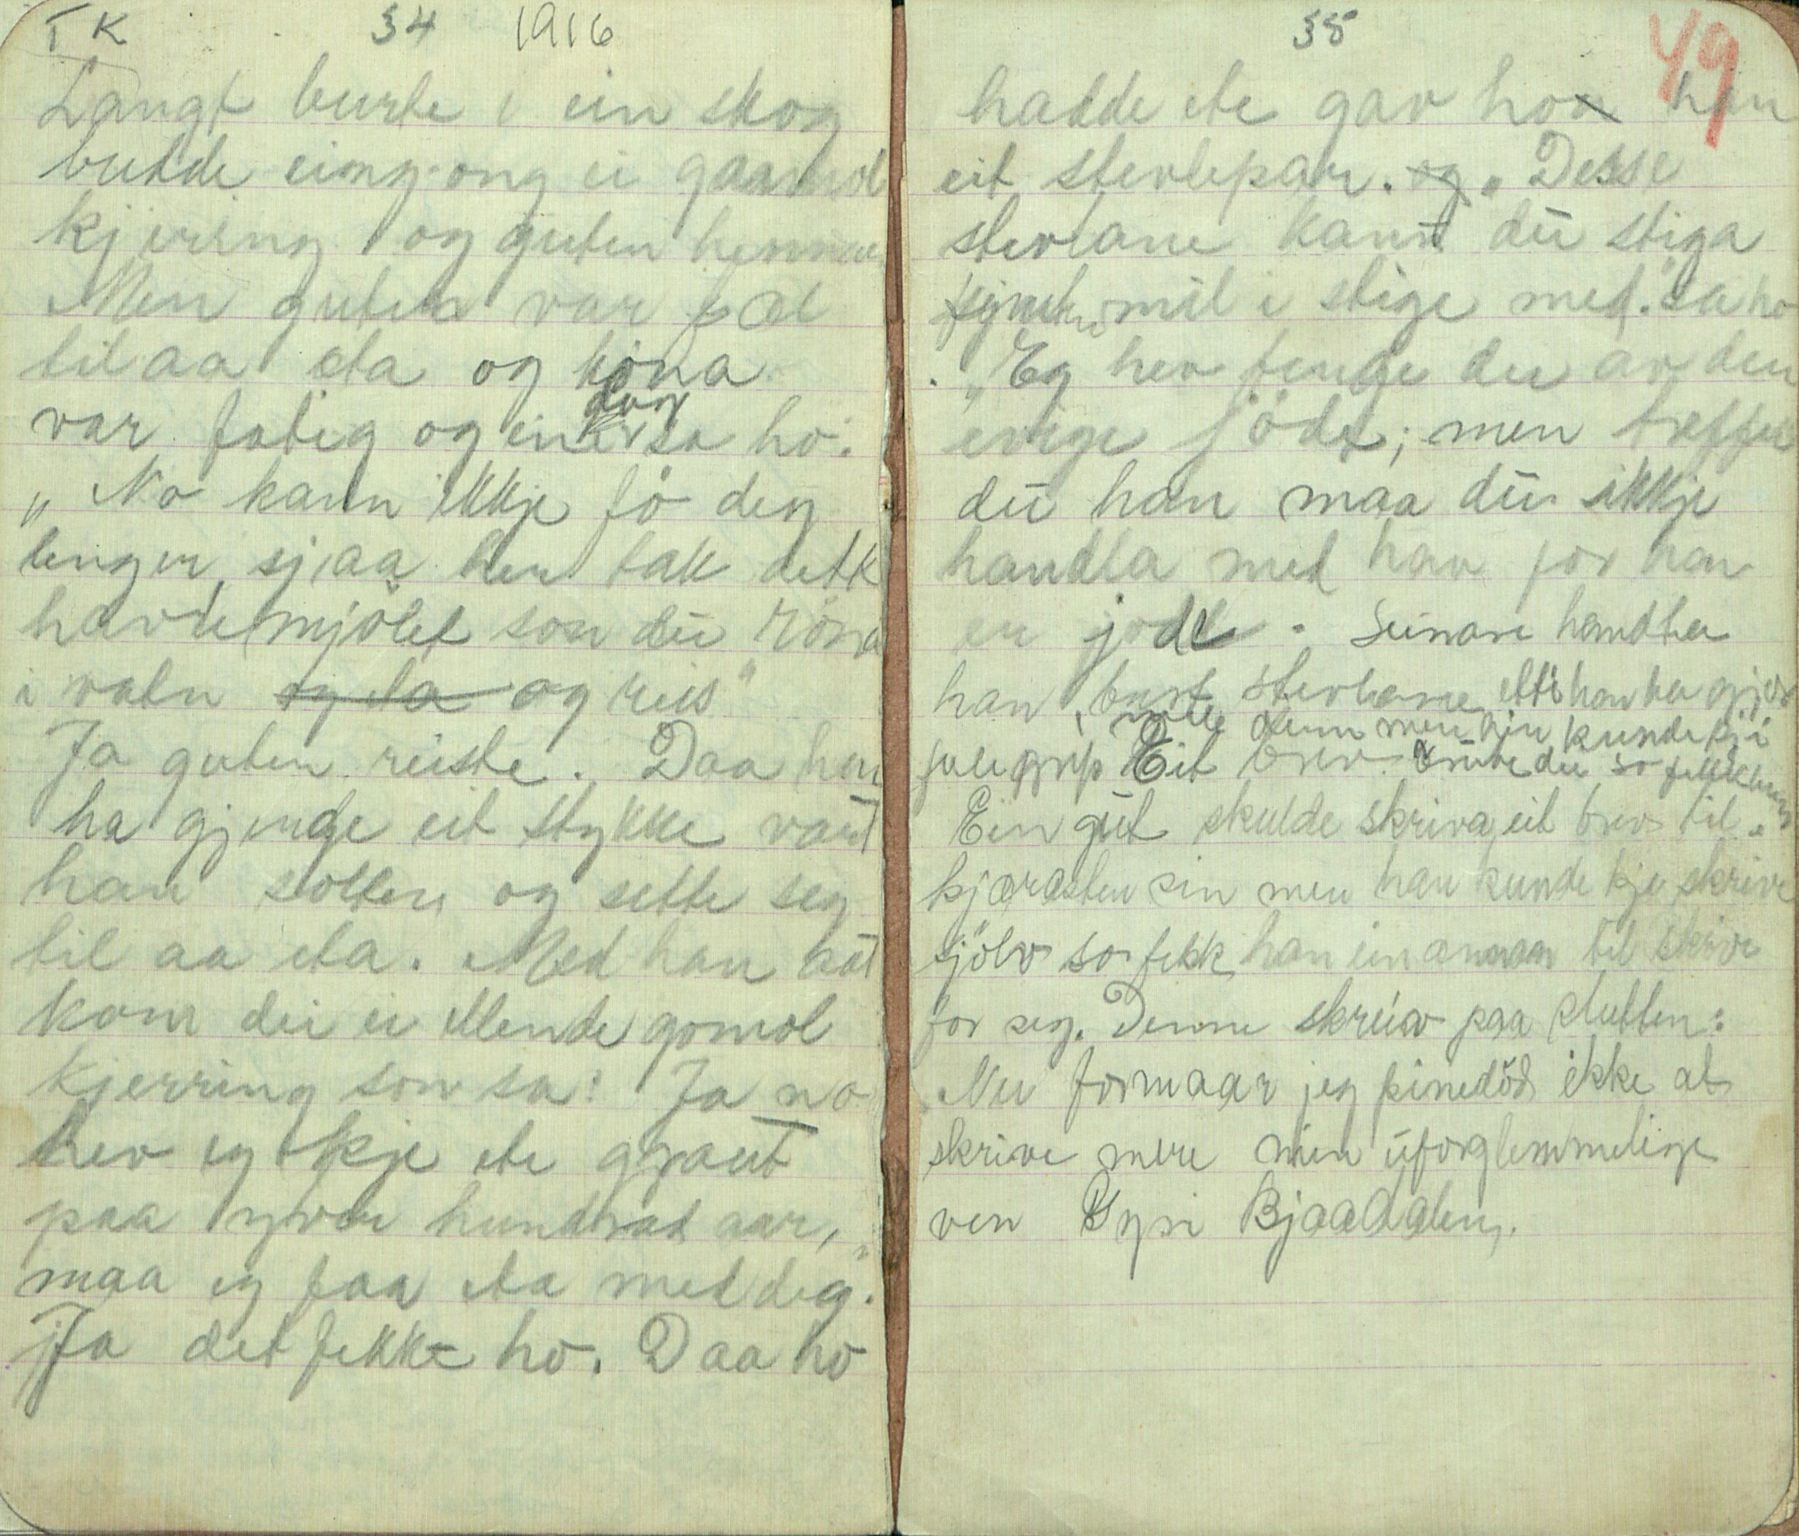 TK 34 1916
Langt burte i ein skog
budde eingong ei gaamol
kjerring og guten hennar
Men guten var fæl
til aa eta og kona
var fatig og ein dag sa ho:
„No kann ikkje fø deg
lenger, sjaa her tak dette
havremjølet som du røra
i vatn og eta og reis"
Ja guten reiste. Daa han
ha gjenge eit stykke vart
han solten og sette seg
til aa eta. Med han aat
kom dei ei ellende gomol
kjerring som sa: Ja no
hev eg kje ete graut
paa yver hundrad aar, „
maa eg faa eta med deg.
Ja det fekk ho. Daa ho
35 49
hadde ete gav ho han
eit stevlepar. og „Desse
stevlane kann du stiga
mil i stige med." sa ho
„Eg hev fenge dei av den
evige jøde; men treffer
du han maa du ikkje
handla med han for han
er jøde. Seinare handla
han burt stevlane
Eit brev
Ein gut skulde skriva eit brev til
kjærasten sin men han kunde kje skriva
sjølv so fekk han ein annan til skrive
for seg. Denne skreiv paa slutten:
Nu formaar jeg pinedød ikke at
skrive mere min uforglemmelige
ven Gyri Bjaadalen.